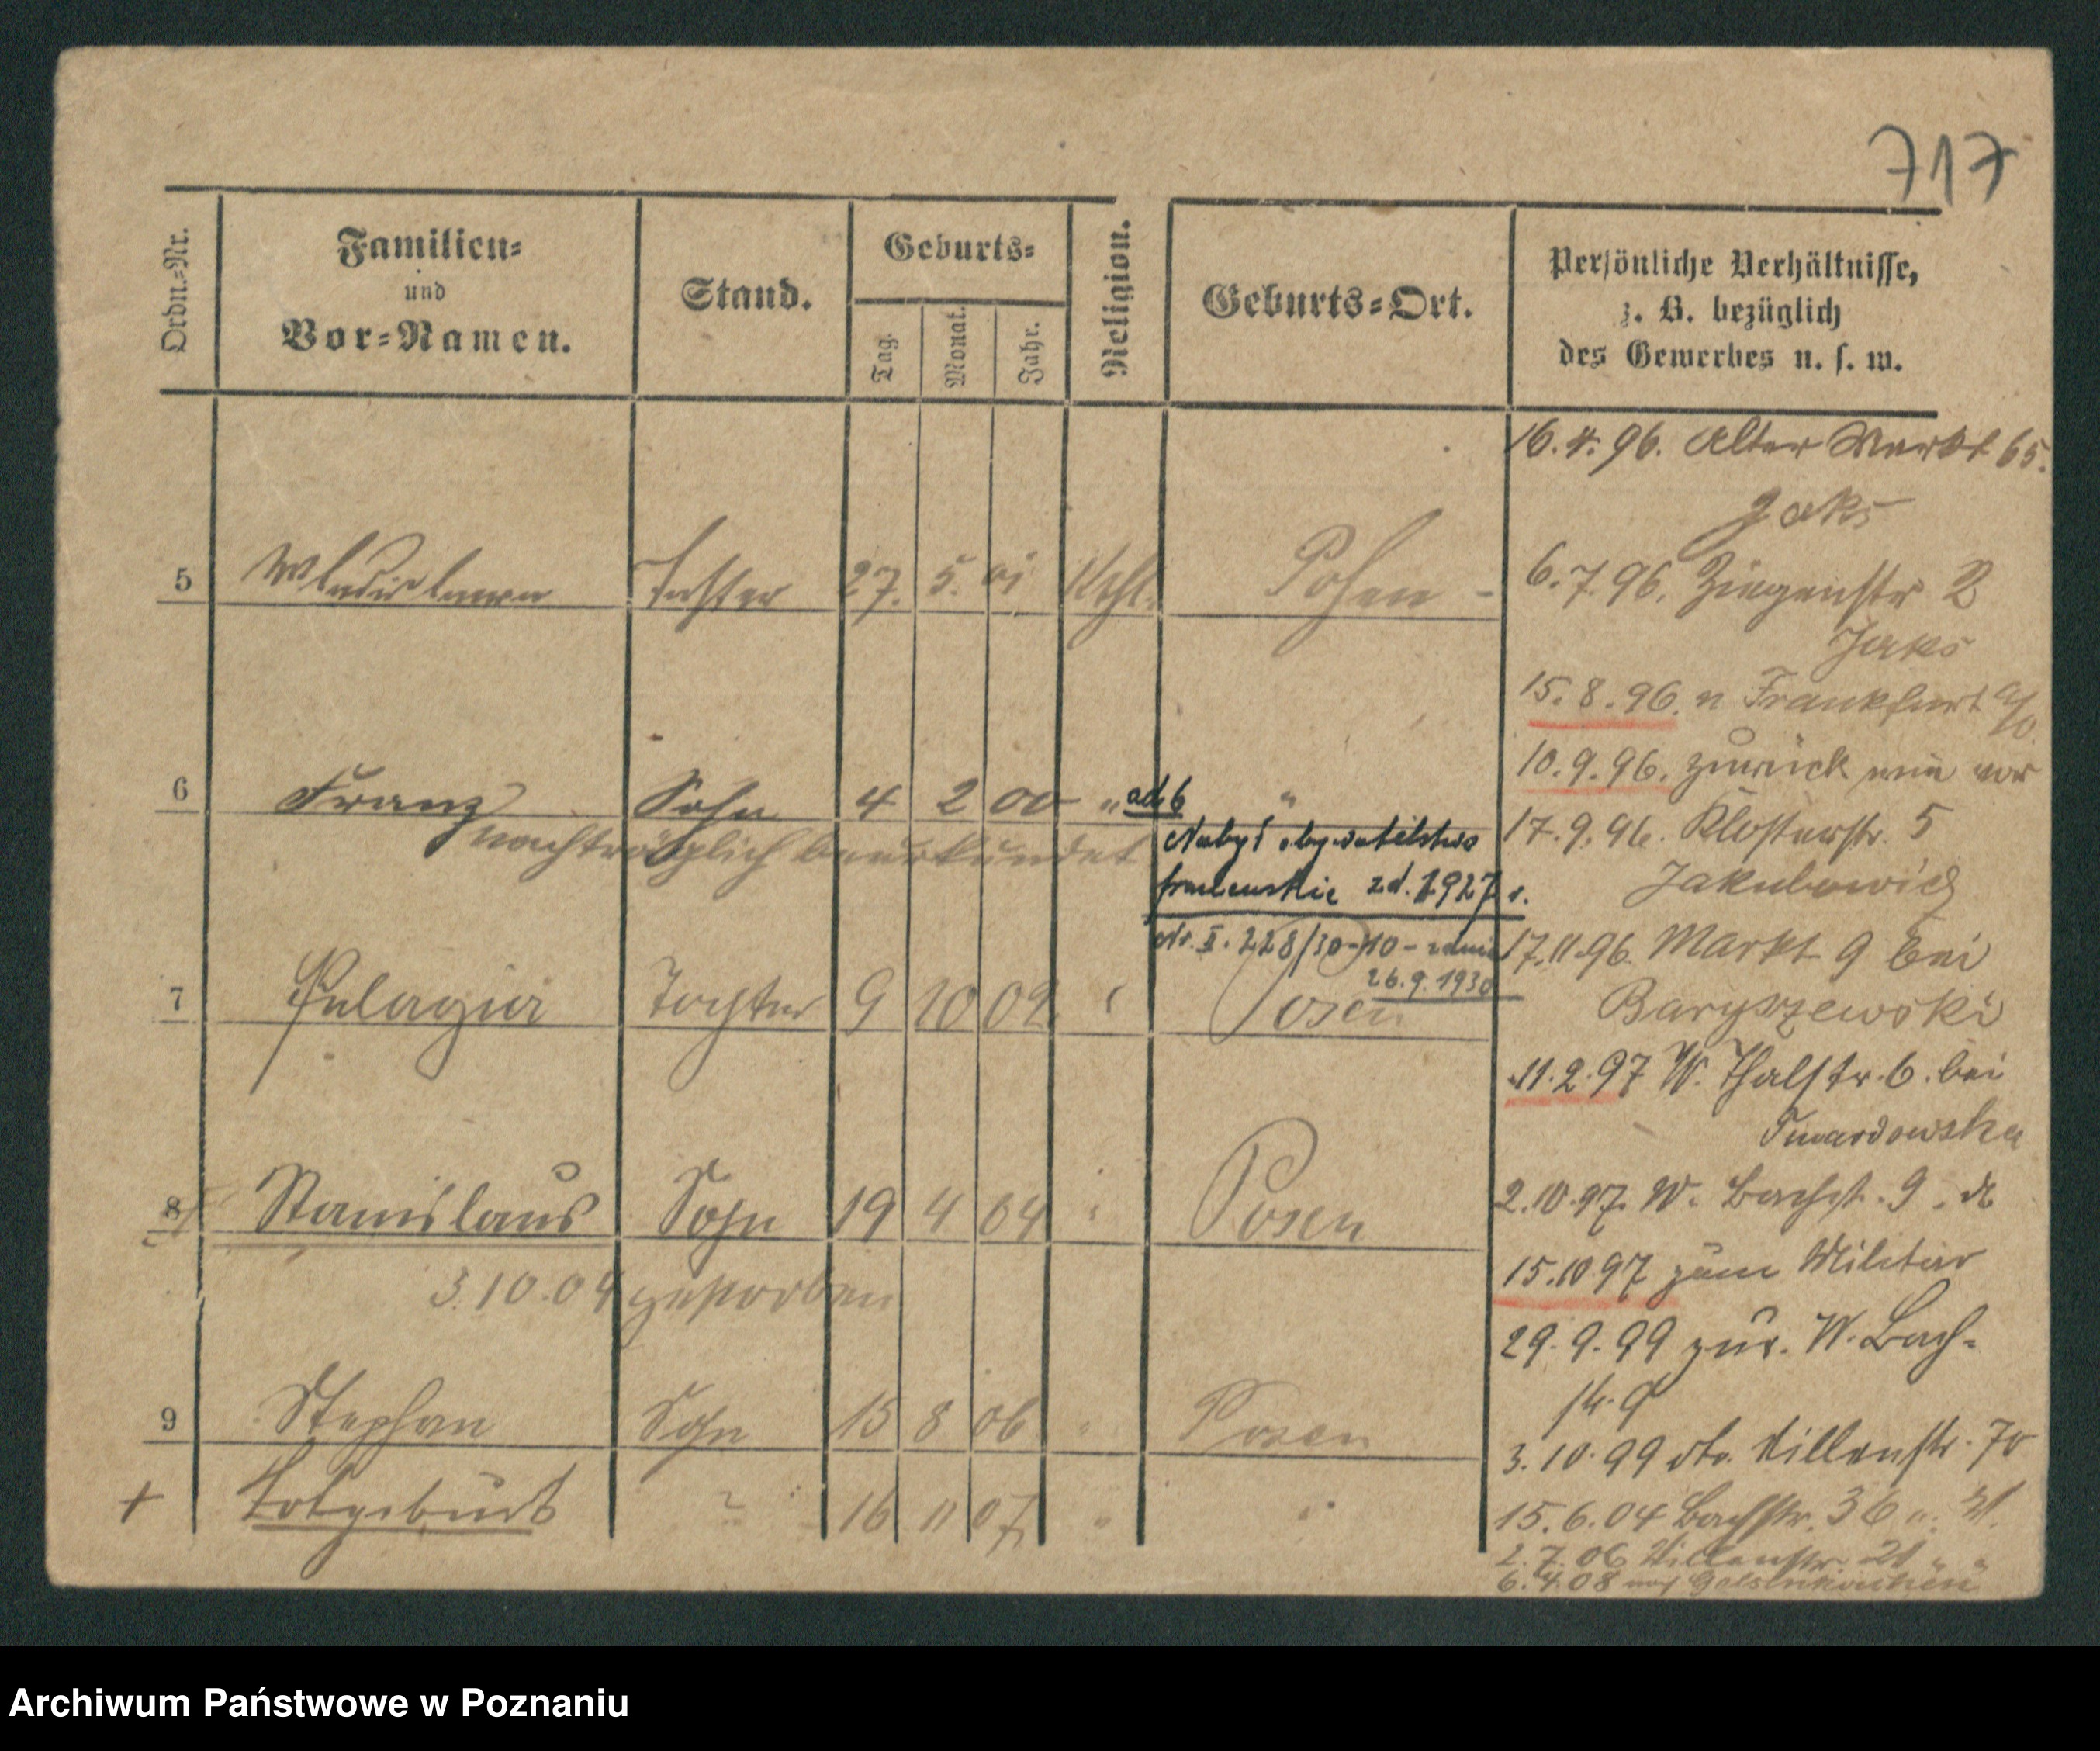 717
Ordn.=Nr.
Familien=
und
Vor=Namen.
Stand.
Geburts=
Tag.
Monat.
Jahr.
Religion.
Geburts=Ort.
Persönliche Verhältnisse,
z. B. bezüglich
des Gewerbes u. s. w.
16. 4. 96. Alter Markt 65.
Jaks
5 Wladislawa Tochter 27. 5. 01 Kthl. Posen -
6. 7. 96. Ziegenstr 2
Jaks
15. 8. 96. n Frankfurt a/O
10. 9. 96. zurück wie vor
6 Franz Sohn 4 2 00 " "
nachträglich beurkundet
ad. 6
Nabył obywatelstwo
francuskie z d. 1927 r.
Nr. II. 228/30-10 -
26. 9. 1930
17. 9. 96. Klosterstr. 5
Jakubowicz
17. 11. 96. Markt 9 bei
Baryszewski
7 Pelagia Tochter 9 10 02 " Posen
11. 2. 97 W. Thalstr. 6. bei
Twardowska
8 Stanislaus Sohn 19 4 04 " Posen
3. 10. 04 gestorben
2. 10. 97. W. Bachst. 9.
15. 10 97 zum Militär
29. 9. 99 zur. W. Bach-
str. 9
9 Stephan Sohn 15 8 06 " Posen
3. 10. 99 dto. Killenstr. 70
+ Totgeburt 16 11 07 "
15. 6. 04 Bachstr. 36
2. 7. 06 21 " "
6. 4. 08 nach Gelsenkirchen
Archiwum Państwowe w Poznaniu